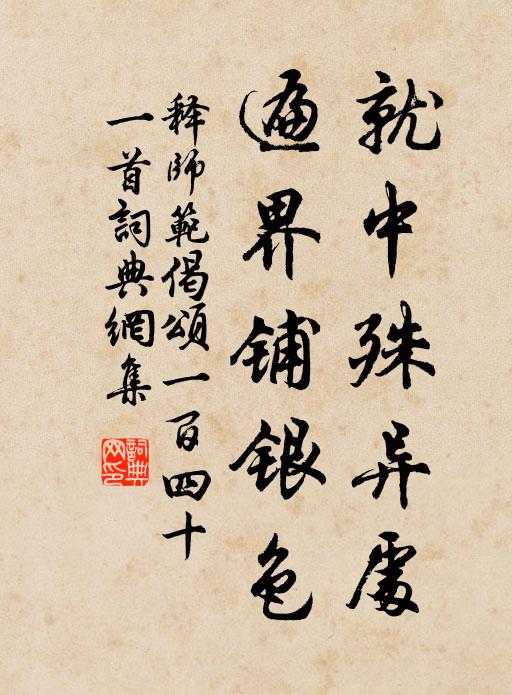 就中殊异處
遍界铺银色
释師範偈頌一百四十
一首詞典網集
詞典网印